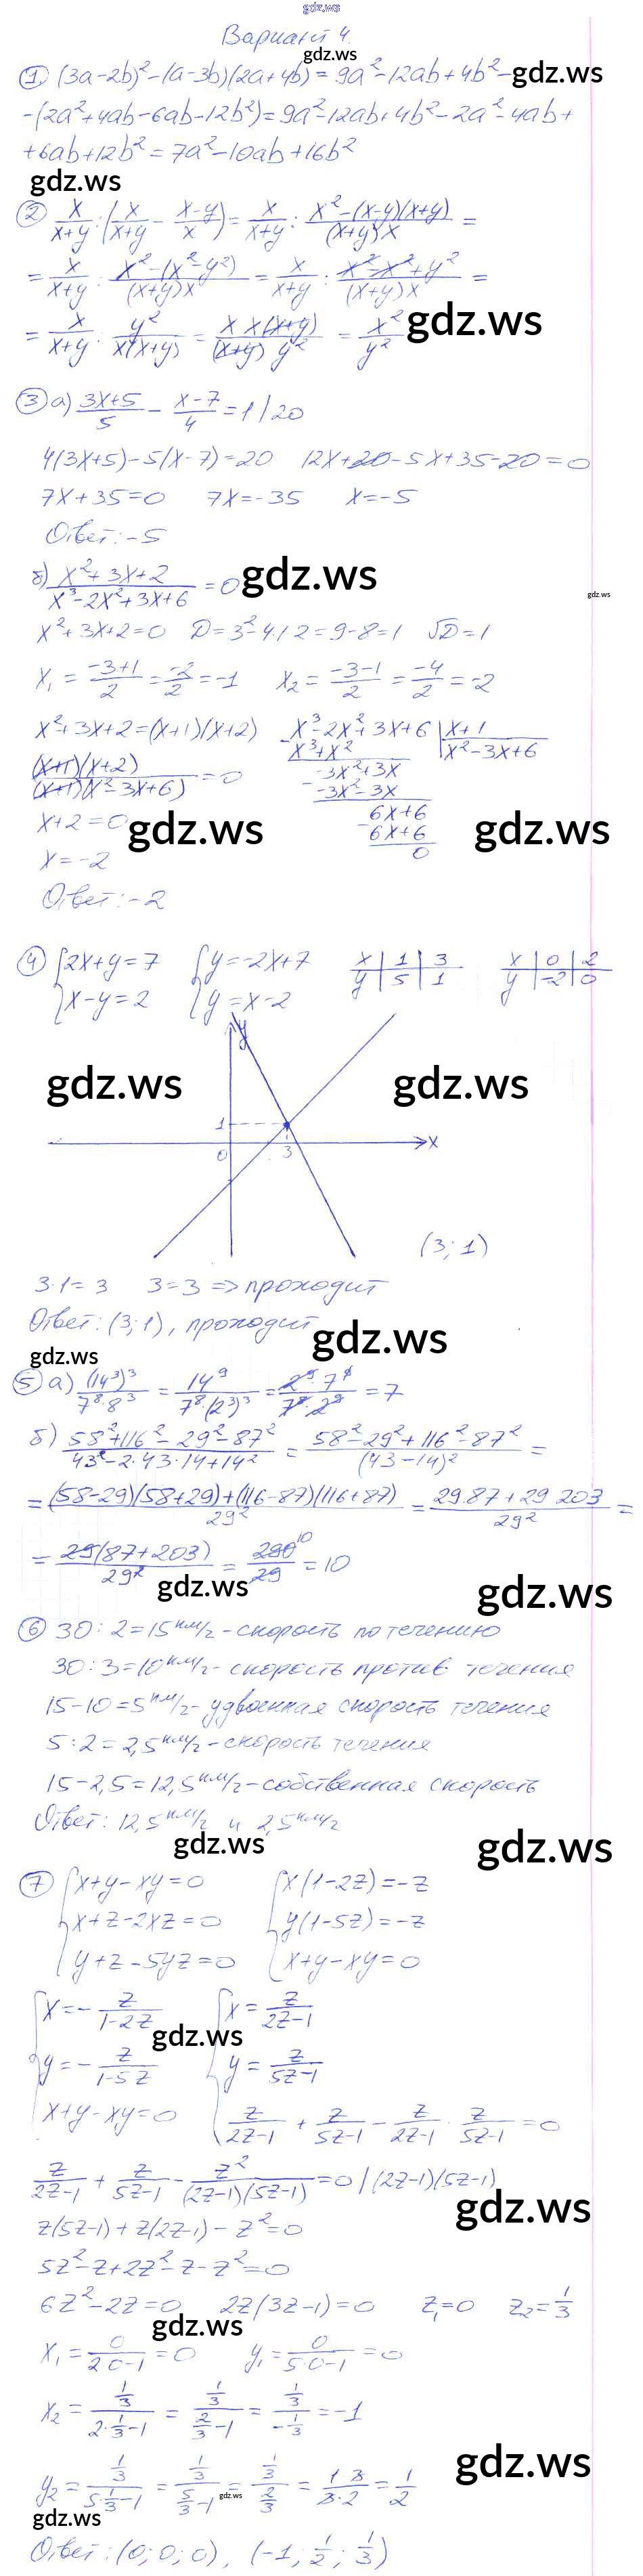 gdz.ws
Вариант 4.
gdz.ws
① (3a-2b)²-(a-3b)(2a+4b)=9a²-12ab+4b²-
gdz.ws
-(2a²+4ab-6ab-12b²)=9a²-12ab+4b²-2a²-4ab+
+6ab+12b²=7a²-10ab+16b²
gdz.ws
② x/(x+y) : (x/(x+y) - (x-y)/x) = x/(x+y) : (x²-(x-y)(x+y))/((x+y)x) =
= x/(x+y) : (x²-(x²-y²))/((x+y)x) = x/(x+y) : (x²-x²+y²)/((x+y)x) =
= x/(x+y) : y²/(x(x+y)) = (x x(x+y))/((x+y) y²) = x²/y²
gdz.ws
③ а) (3x+5)/5 - (x-7)/4 = 1 /20
4(3x+5)-5(x-7)=20 12x+20-5x+35-20=0
7x+35=0 7x=-35 x=-5
Ответ: -5
б) (x²+3x+2)/(x³-2x²+3x+6) = 0
gdz.ws
gdz.ws
x²+3x+2=0 D=3²-4·1·2=9-8=1 √D=1
x₁ = (-3+1)/2 = -2/2 = -1 x₂ = (-3-1)/2 = -4/2 = -2
x²+3x+2=(x+1)(x+2) x³-2x²+3x+6 | x+1
x³+x² x²-3x+6
((x+1)(x+2))/((x+1)(x²-3x+6)) = 0 -3x²+3x
-3x²-3x
x+2=0 6x+6
gdz.ws gdz.ws
-6x+6
x=-2 0
Ответ: -2
④ {2x+y=7 {y=-2x+7 x | 1 | 3 x | 0 | 2
{x-y=2 {y=x-2 y | 5 | 1 y | -2 | 0
y
gdz.ws gdz.ws
1
0 3 x
(3; 1)
3·1=3 3=3 => проходит
Ответ: (3; 1), проходит
gdz.ws
gdz.ws
⑤ а) (14³)³/(7⁸·8³) = 14⁹/(7⁸·(2³)³) = (2⁹·7⁹)/(7⁸·2⁹) = 7
б) (58²+116²-29²-87²)/(43²-2·43·14+14²) = (58²-29²+116²-87²)/(43-14)² =
= ((58-29)(58+29)+(116-87)(116+87))/29² = (29·87+29·203)/29² =
= (29(87+203))/29² = 290/29 = 10
10
gdz.ws gdz.ws
⑥ 30:2=15км/ч - скорость по течению
30:3=10км/ч - скорость против течения
15-10=5км/ч - удвоенная скорость течения
5:2=2,5км/ч - скорость течения
15-2,5=12,5км/ч - собственная скорость
Ответ: 12,5км/ч и 2,5км/ч
gdz.ws gdz.ws
⑦ {x+y-xy=0 {x(1-2z)=-z
{x+z-2xz=0 {y(1-5z)=-z
{y+z-5yz=0 {x+y-xy=0
{x=-z/(1-2z) {x=z/(2z-1)
gdz.ws
{y=-z/(1-5z) {y=z/(5z-1)
{x+y-xy=0 {z/(2z-1) + z/(5z-1) - z/(2z-1) · z/(5z-1) = 0
z/(2z-1) + z/(5z-1) - z²/((2z-1)(5z-1)) = 0 /(2z-1)(5z-1)
gdz.ws
z(5z-1)+z(2z-1)-z²=0
5z²-z+2z²-z-z²=0
6z²-2z=0 2z(3z-1)=0 z₁=0 z₂=1/3
gdz.ws
x₁ = 0/(2·0-1) = 0 y₁ = 0/(5·0-1) = 0
x₂ = (1/3)/(2·1/3-1) = (1/3)/(2/3-1) = (1/3)/(-1/3) = -1
gdz.ws
y₂ = (1/3)/(5·1/3-1) = (1/3)/(5/3-1) = (1/3)/(2/3) = (1·3)/(3·2) = 1/2
gdz.ws
gdz.ws
Ответ: (0; 0; 0), (-1; 1/2; 1/3)